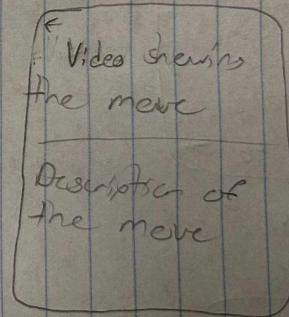 Video showing
the move
Description of
the move